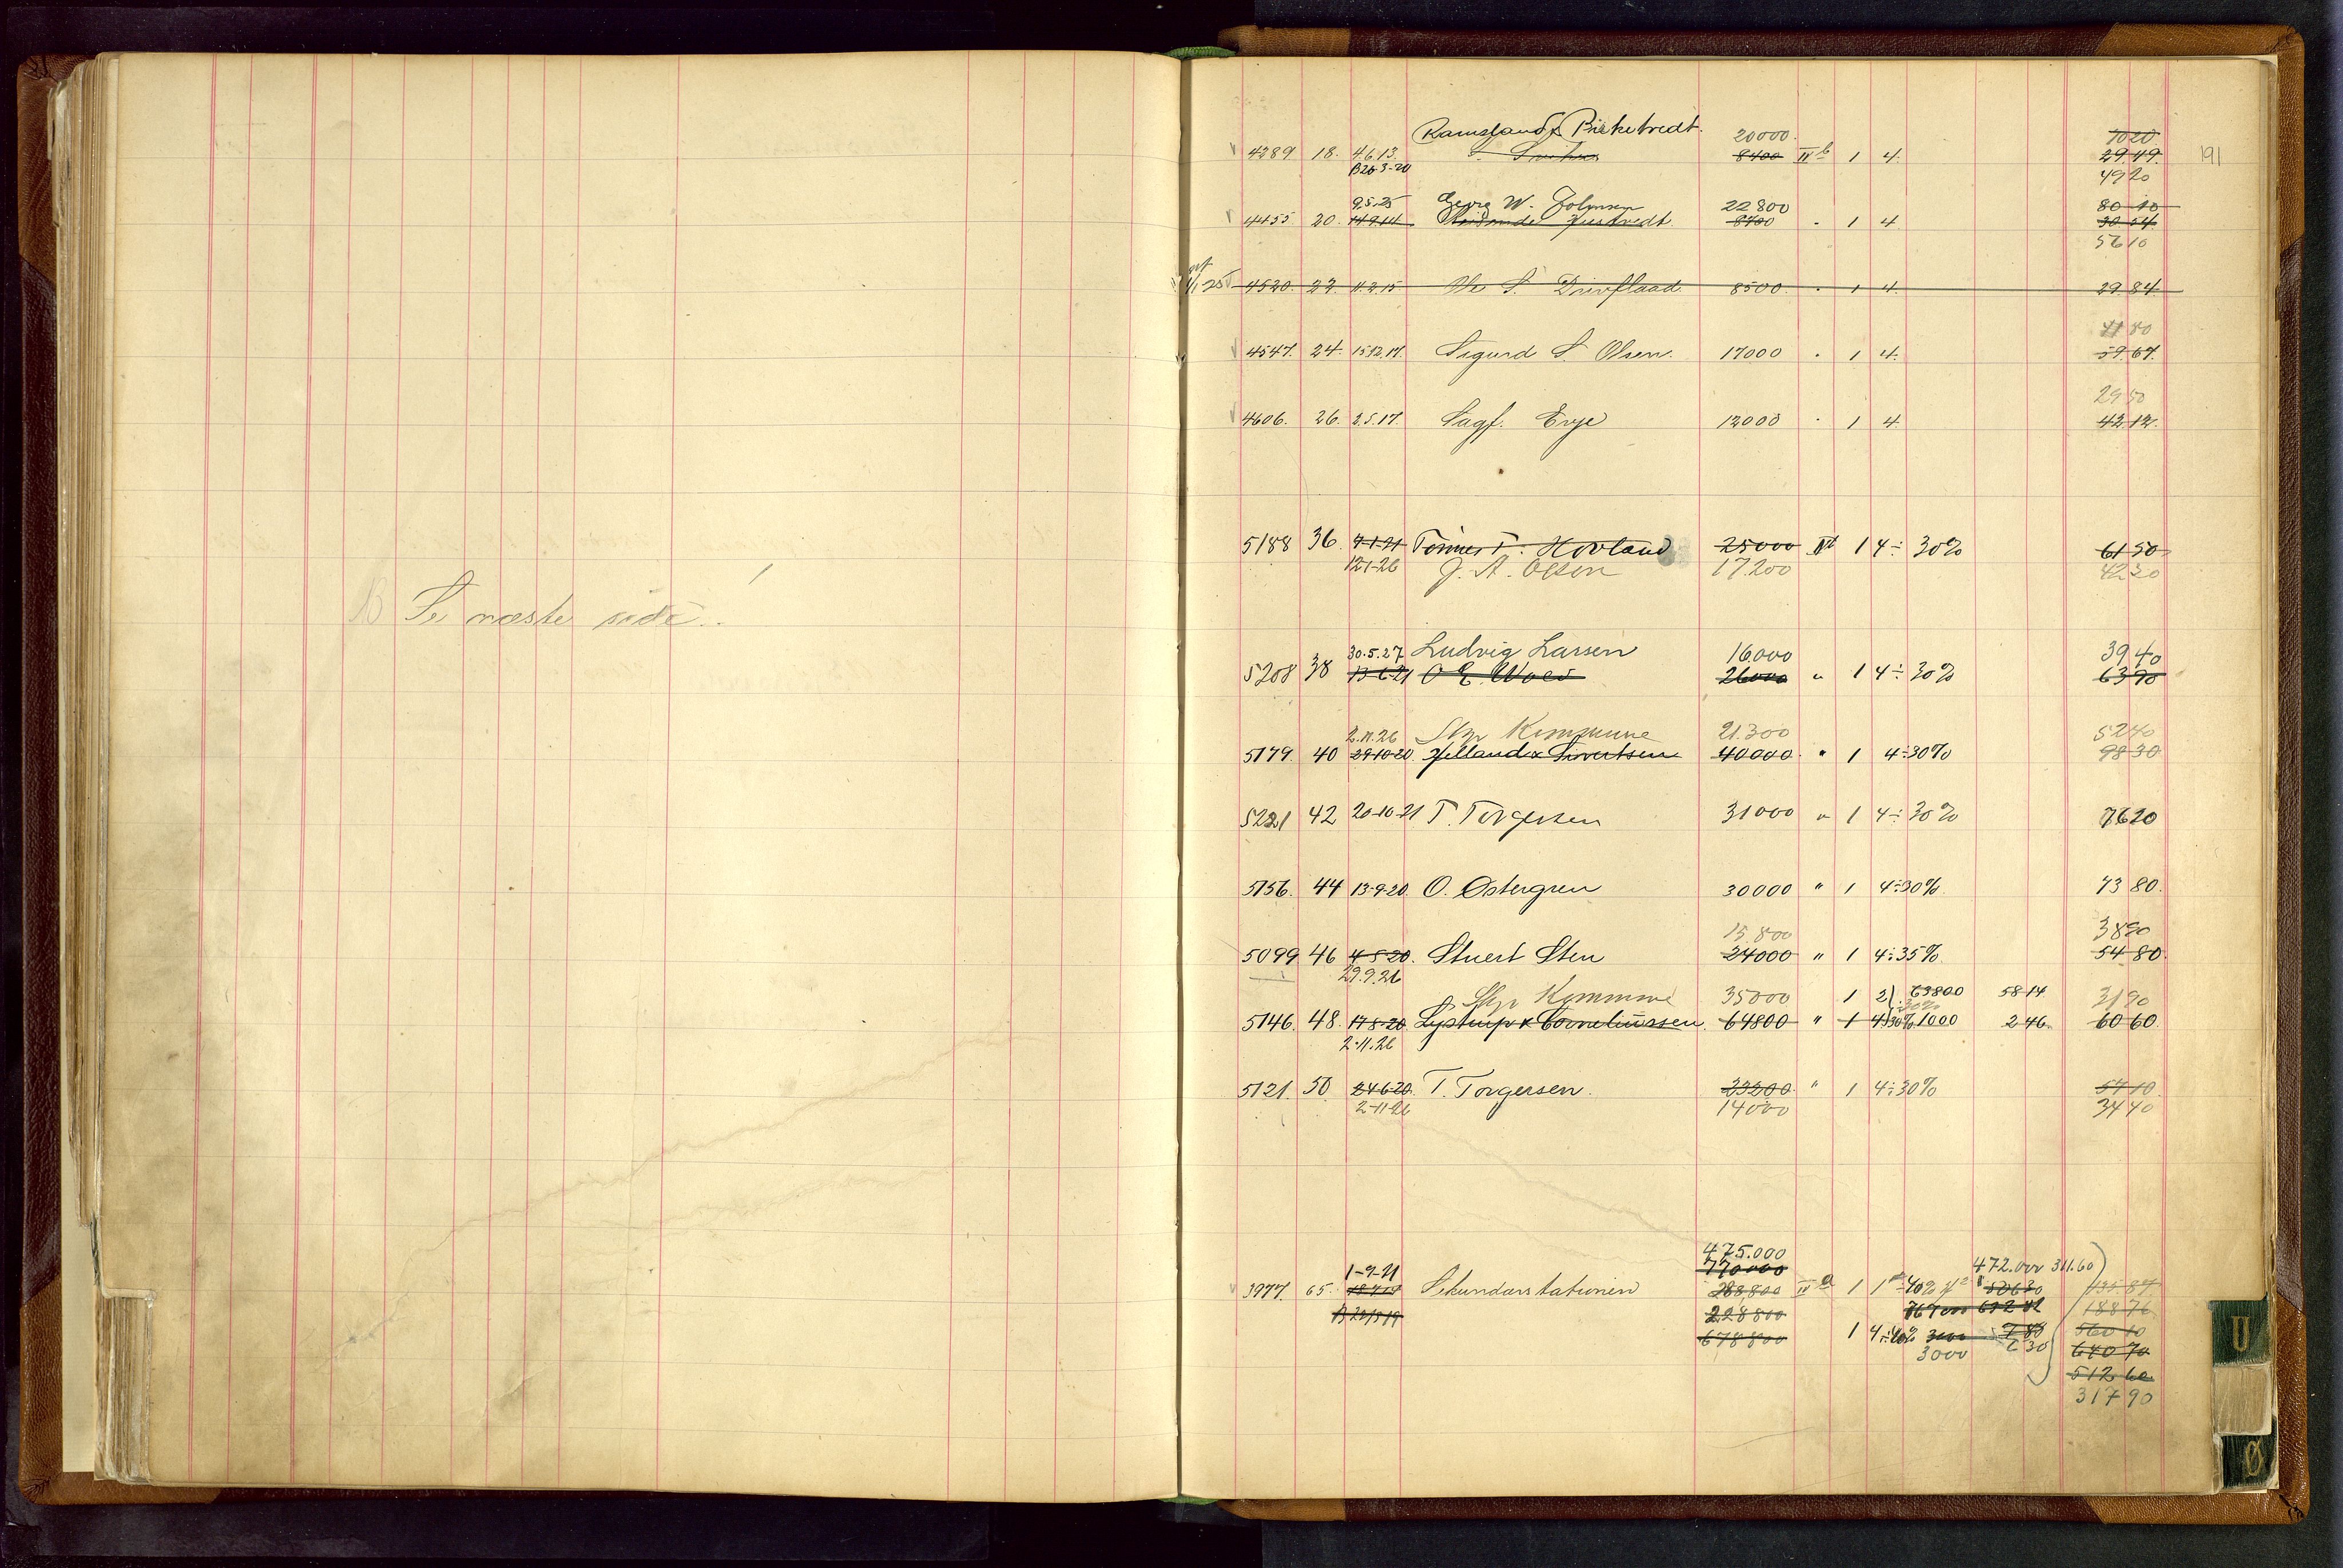 Se næste side.
191
Ramsland & Birketvedt. 20000. 7020
4289 18. 4.6.13. 8400 II b 1 4. 29.49.
B26-3-20 49 20
9.5.25 Georg W. Johnsen 22800 80 10
4455 20. 14.9.14 8700 . 1 4 30 54
56 10
4520. 22. 11.2.15 Ole S. Drivflaad. 8500. . 1 4. 29.84
41 80
4547. 24. 15.12.17. Sigurd S. Olsen. 17000 . 1 4. 59.67.
29 50
4606. 26. 2.5.17. Sagf. Erge 12000 . 1 4 42.12.
5188 36. 7-1-21 Tønnes T. Hovland 25000 II b 1 4 ÷ 30% 61 50
12-1-26 J. A. Olsen 17.200 42 30
30.5.27 Ludvig Larsen 16000 39 40
5208 38 13-6-21 O E Wold 26000 " 1 4 ÷ 30% 63 90
2.11.26 Skp Kommune 21.300 52 40
5179. 40 29-10-20. Jelland & Sivertsen 40000. " 1 4÷30% 98 30
5221 42 20-10-21 T. Torgersen 31000 " 1 4 ÷ 30% 76 20
5156. 44 13-9-20. O. Østergren 30000 " 1 4÷30% 73 80.
15.800 38 90
5099 46 4-5-20. Stuert Sten 24000 " 1 4÷35% 54 80.
29.9.26
Skp Kommune 35000 1 2 63800 58 14
5146. 48. 17-8-20. Lystrup & Corneliussen 64800 " 1 4 30% 1000 2 46. 60 60.
2-11-26
5121. 50 24-6-20. T. Torgersen. 23200. " 1 4÷30% 57 10.
2-11-26 14000 34 40
475.000
1-9-21 770000 472.000 311.60
3977. 65. 18.7.10 Sekundærstationen 288,800 II a 1 1 ÷ 40% 135.87
228800 188 76
678800 1 4÷40% 3000 7 80 560 10
3000 6 30 640 70
512 60
317 90
U
Ø